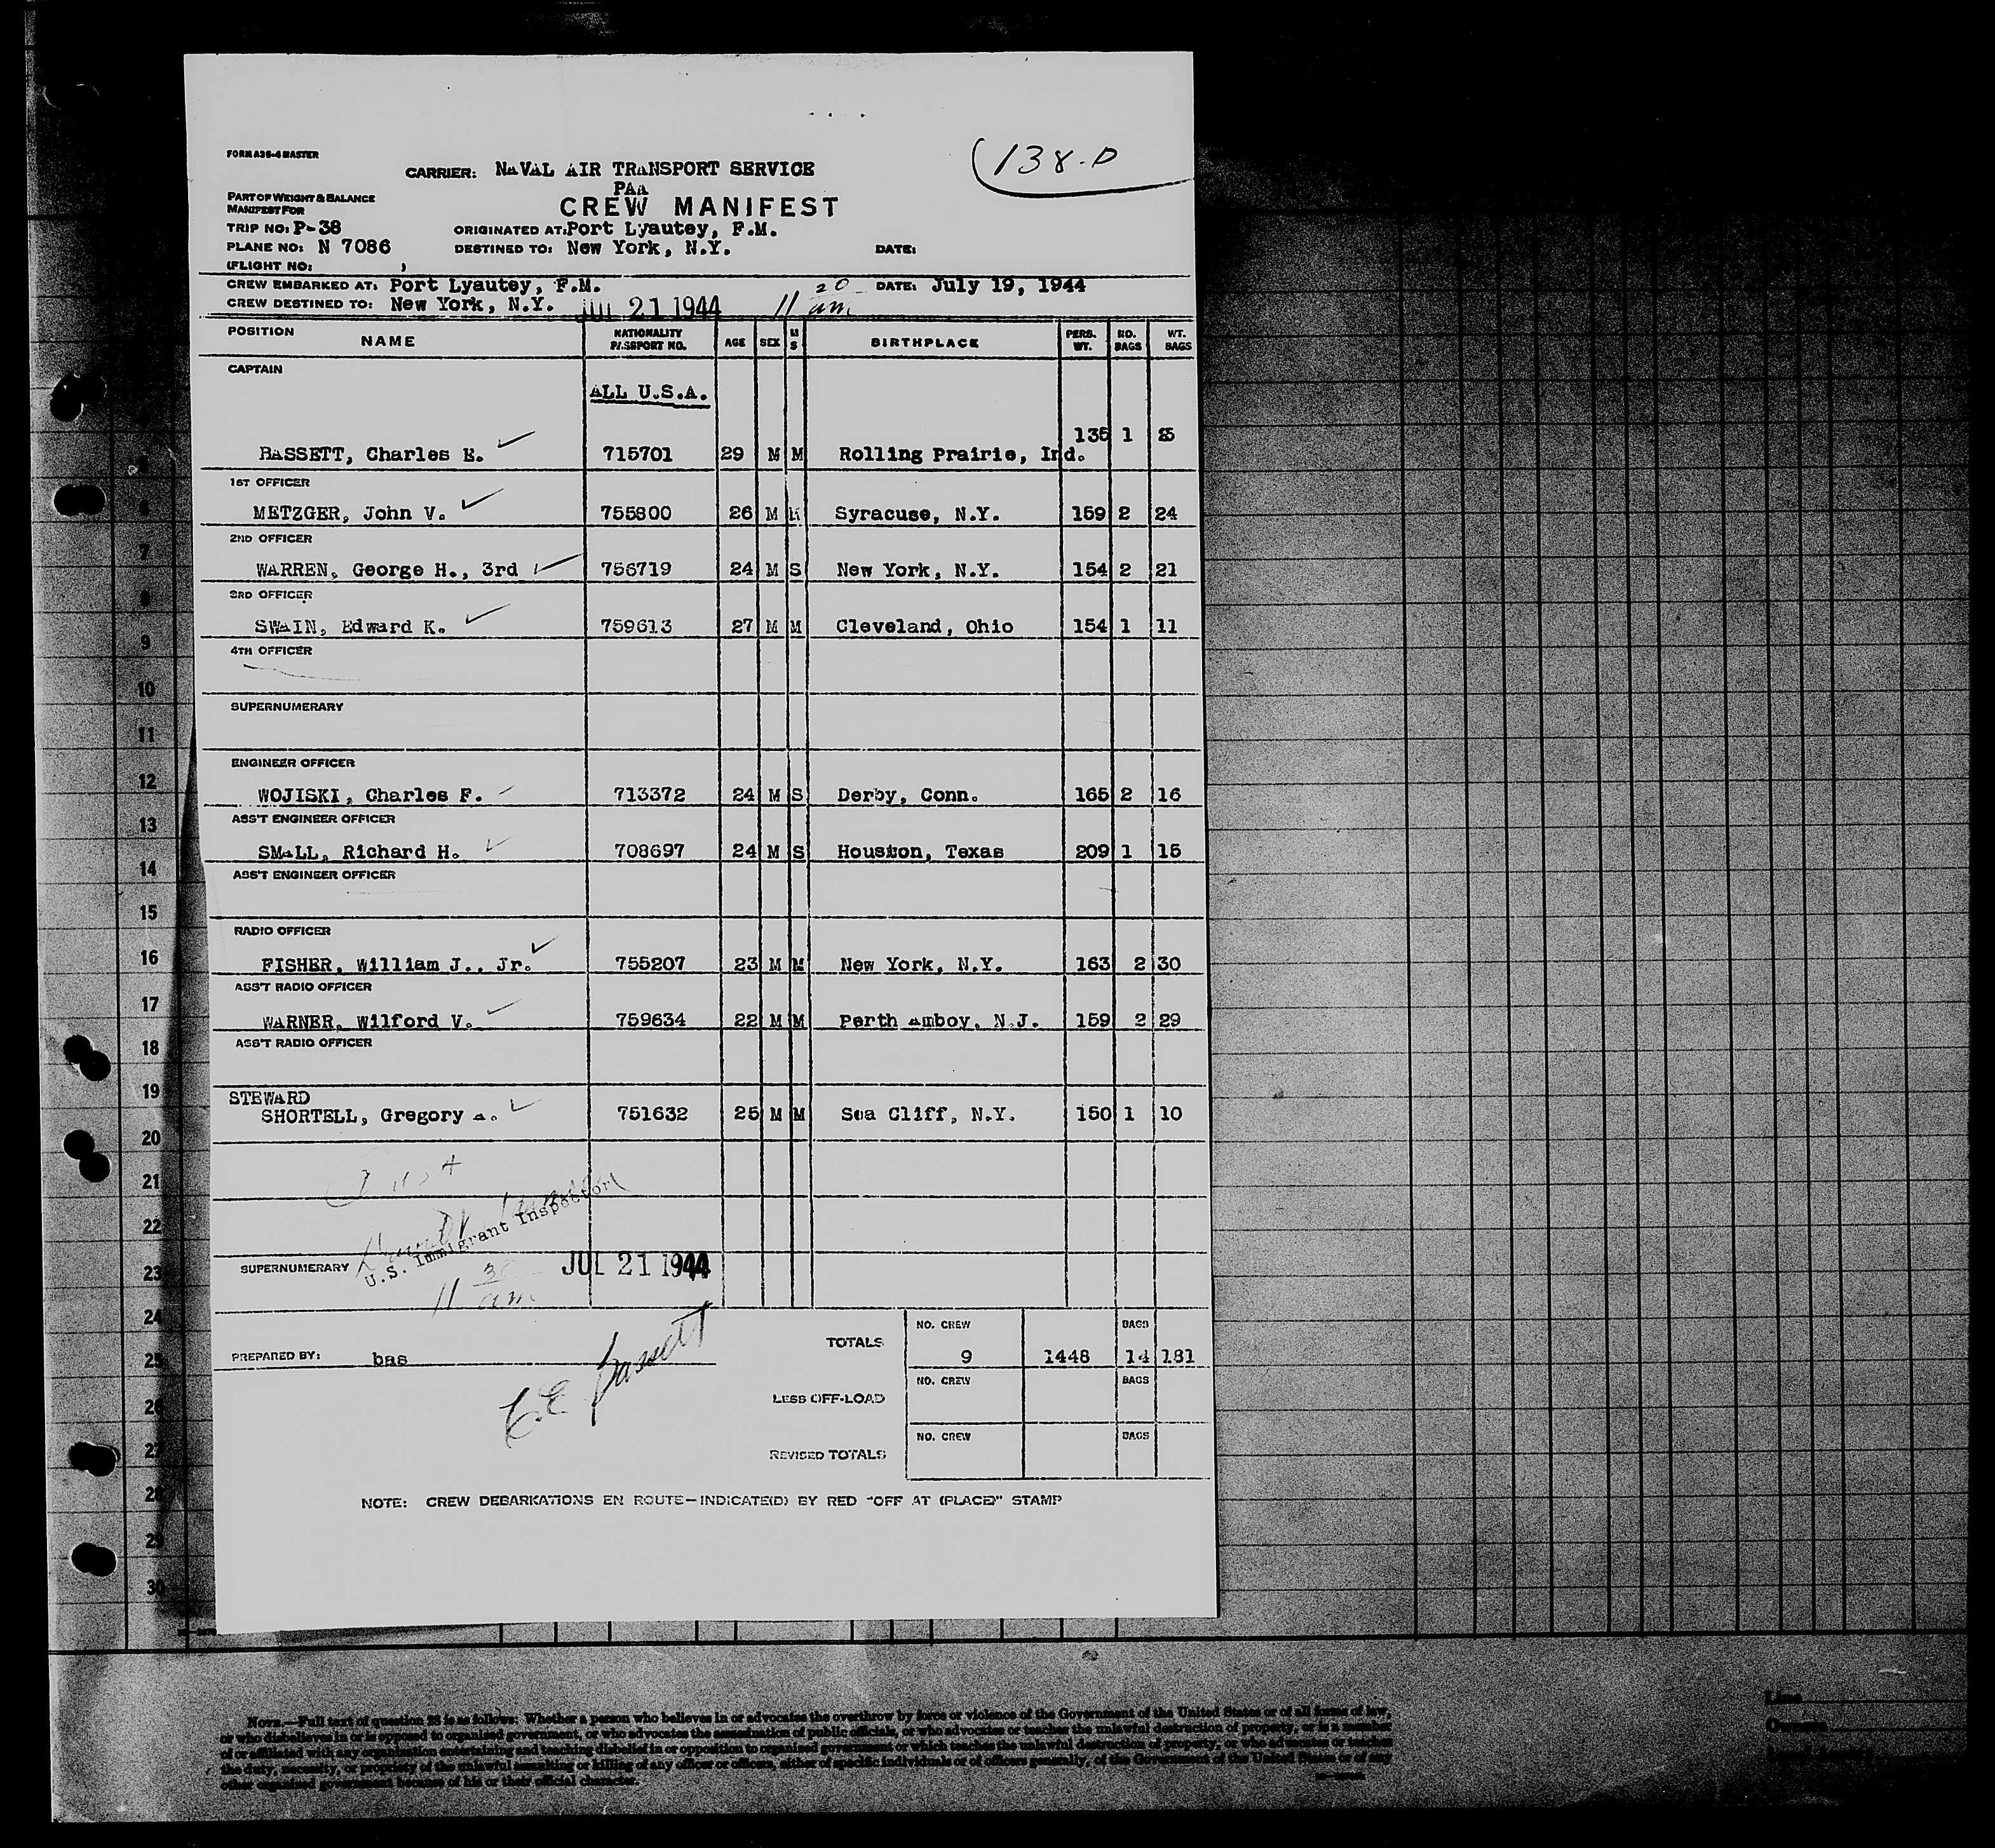 138-D
FORM A36-4 MASTER
CARRIER: NAVAL AIR TRANSPORT SERVICE
PAA
PART OF WEIGHT & BALANCE
MANIFEST FOR
CREW MANIFEST
TRIP NO: P-38 ORIGINATED AT: Port Lyautey, F.M.
PLANE NO: N 7086 DESTINED TO: New York, N.Y. DATE:
(FLIGHT NO: )
CREW EMBARKED AT: Port Lyautey, F.M. DATE: July 19, 1944
CREW DESTINED TO: New York, N.Y. JUL 21 1944 11 20 am
POSITION NAME NATIONALITY PASSPORT NO. AGE SEX M S BIRTHPLACE PERS. WT. NO. BAGS WT. BAGS
CAPTAIN
ALL U.S.A.
BASSETT, Charles E. 715701 29 M M Rolling Prairie, Ind. 135 1 25
1ST OFFICER
METZGER, John V. 755800 26 M M Syracuse, N.Y. 159 2 24
2ND OFFICER
WARREN, George H., 3rd 756719 24 M S New York, N.Y. 154 2 21
3RD OFFICER
SWAIN, Edward K. 759613 27 M M Cleveland, Ohio 154 1 11
4TH OFFICER
SUPERNUMERARY
ENGINEER OFFICER
WOJISKI, Charles F. 713372 24 M S Derby, Conn. 165 2 16
ASS'T ENGINEER OFFICER
SMALL, Richard H. 708697 24 M S Houston, Texas 209 1 15
ASS'T ENGINEER OFFICER
RADIO OFFICER
FISHER, William J., Jr. 755207 23 M M New York, N.Y. 163 2 30
ASS'T RADIO OFFICER
WARNER, Wilford V. 759634 22 M M Perth Amboy, N.J. 159 2 29
ASS'T RADIO OFFICER
STEWARD
SHORTELL, Gregory A. 751632 25 M M Sea Cliff, N.Y. 150 1 10
U.S. Immigrant Inspector
SUPERNUMERARY JUL 21 1944
11 30 am
TOTALS NO. CREW 9 1448 BAGS 14 181
PREPARED BY: bas
C.E. Bassett
LESS OFF-LOAD NO. CREW BAGS
REVISED TOTALS NO. CREW BAGS
NOTE: CREW DEBARKATIONS EN ROUTE—INDICATE(D) BY RED "OFF AT (PLACE)" STAMP
5
6
7
8
9
10
11
12
13
14
15
16
17
18
19
20
21
22
23
24
25
26
27
28
29
30
NOTE.—Full text of question 28 is as follows: Whether a person who believes in or advocates the overthrow by force or violence of the Government of the United States or of all forms of law,
or who disbelieves in or is opposed to organized government, or who advocates the assassination of public officials, or who advocates or teaches the unlawful destruction of property, or is a member
of or affiliated with any organization entertaining and teaching disbelief in or opposition to organized government or which teaches the unlawful destruction of property, or who advocates or teaches
the duty, necessity, or propriety of the unlawful assaulting or killing of any officer or officers, either of specific individuals or of officers generally, of the Government of the United States or of any
other organized government because of his or their official character.
Line
Owners